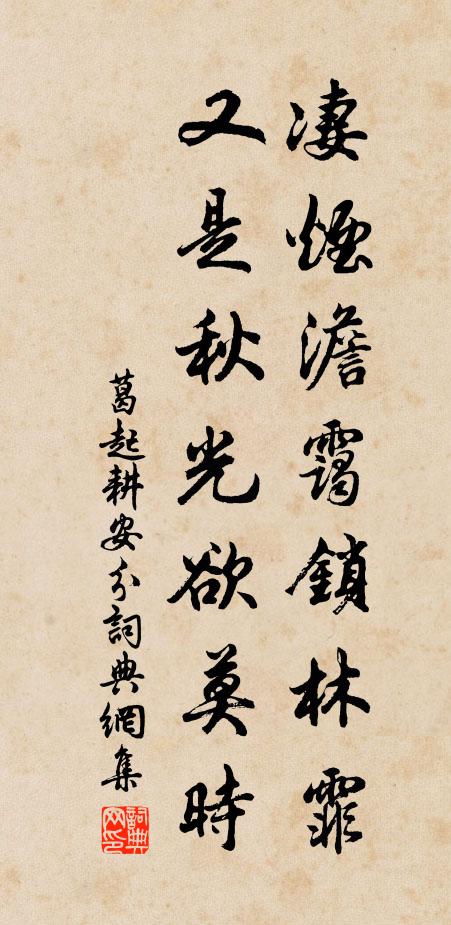 凄煙澹靄鎖林霏
又是秋光欲莫時
葛起耕安分詞典網集
詞典網印